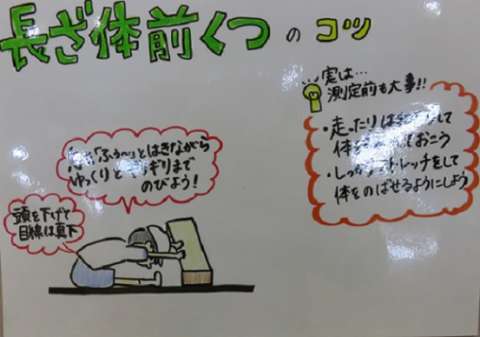 長ざ体前くつ の コツ
実は…
測定前も大事!!
・走ったりは
体を ておこう
・しっかりストレッチをして
体をのばせるようにしよう
息を「ふぅ~」とはきながら
ゆっくりと ギリまで
のびよう!
頭を下げて
目線は真下